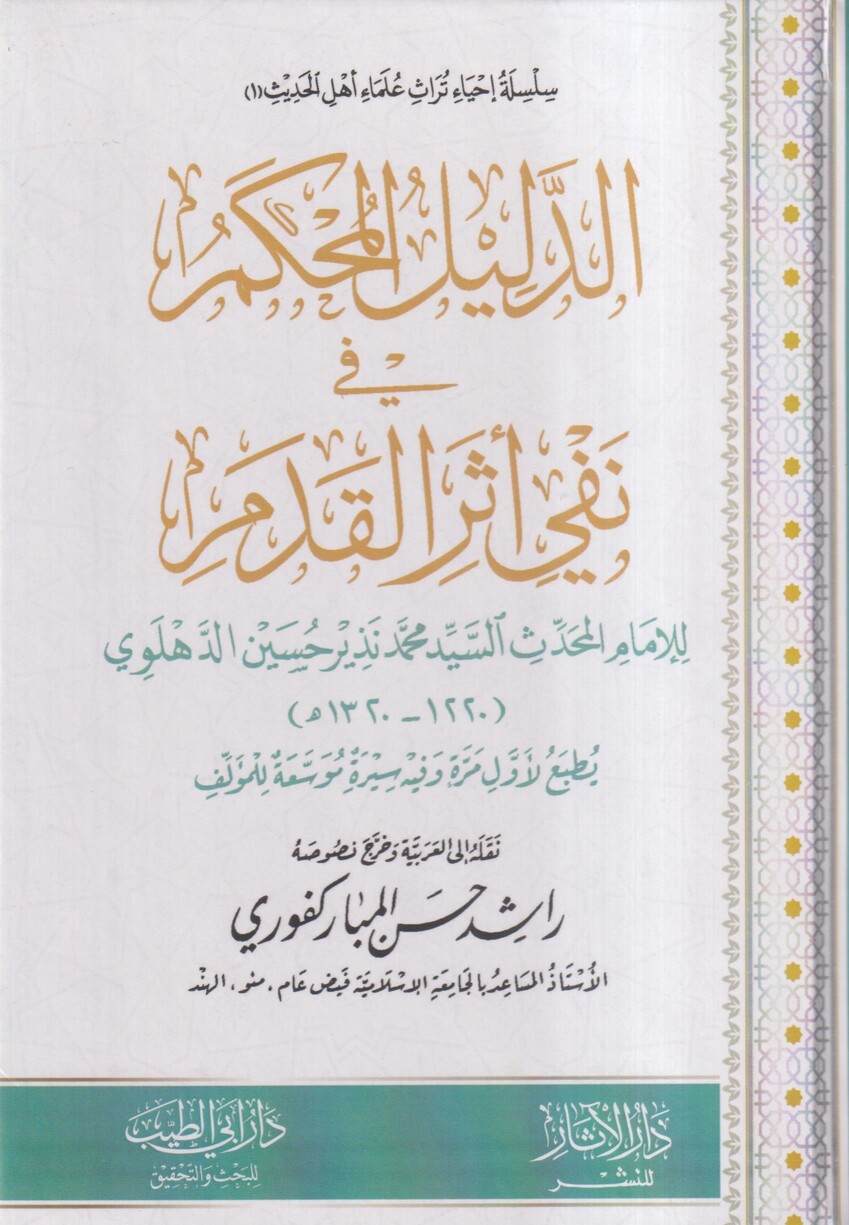 سِلْسِلَةُ إِحْيَاءِ تُرَاثِ عُلَمَاءِ أَهْلِ الْحَدِيثِ (١)
الدَّلِيلُ المُحْكَمُ
في
نَفْيِ أَثَرِ القَدَمِ
لِلإِمَامِ المُحَدِّثِ السَّيِّد محمَّد نَذِير حُسَيْن الدَّهْلَوِي
(١٢٢٠ - ١٣٢٠ هـ)
يُطبَعُ لأَوَّلِ مَرَّة وَفِيه سِيْرَةٌ مُوَسَّعَةٌ لِلْمُؤَلِّفِ
نَقَلَهُ إلى العَرَبيَّة وَخرَّجَ نصُوصَهُ
راشد حسن المباركفوري
الأُسْتَاذُ المسَاعِدُ بالجَامِعَةِ الإسْلَاميَّة فَيض عَام، مئو، الهند
دَارُ الآثَارِ
للنشر
دَار أبي الطيِّب
للبَحْثِ وَالتَّحْقِيق